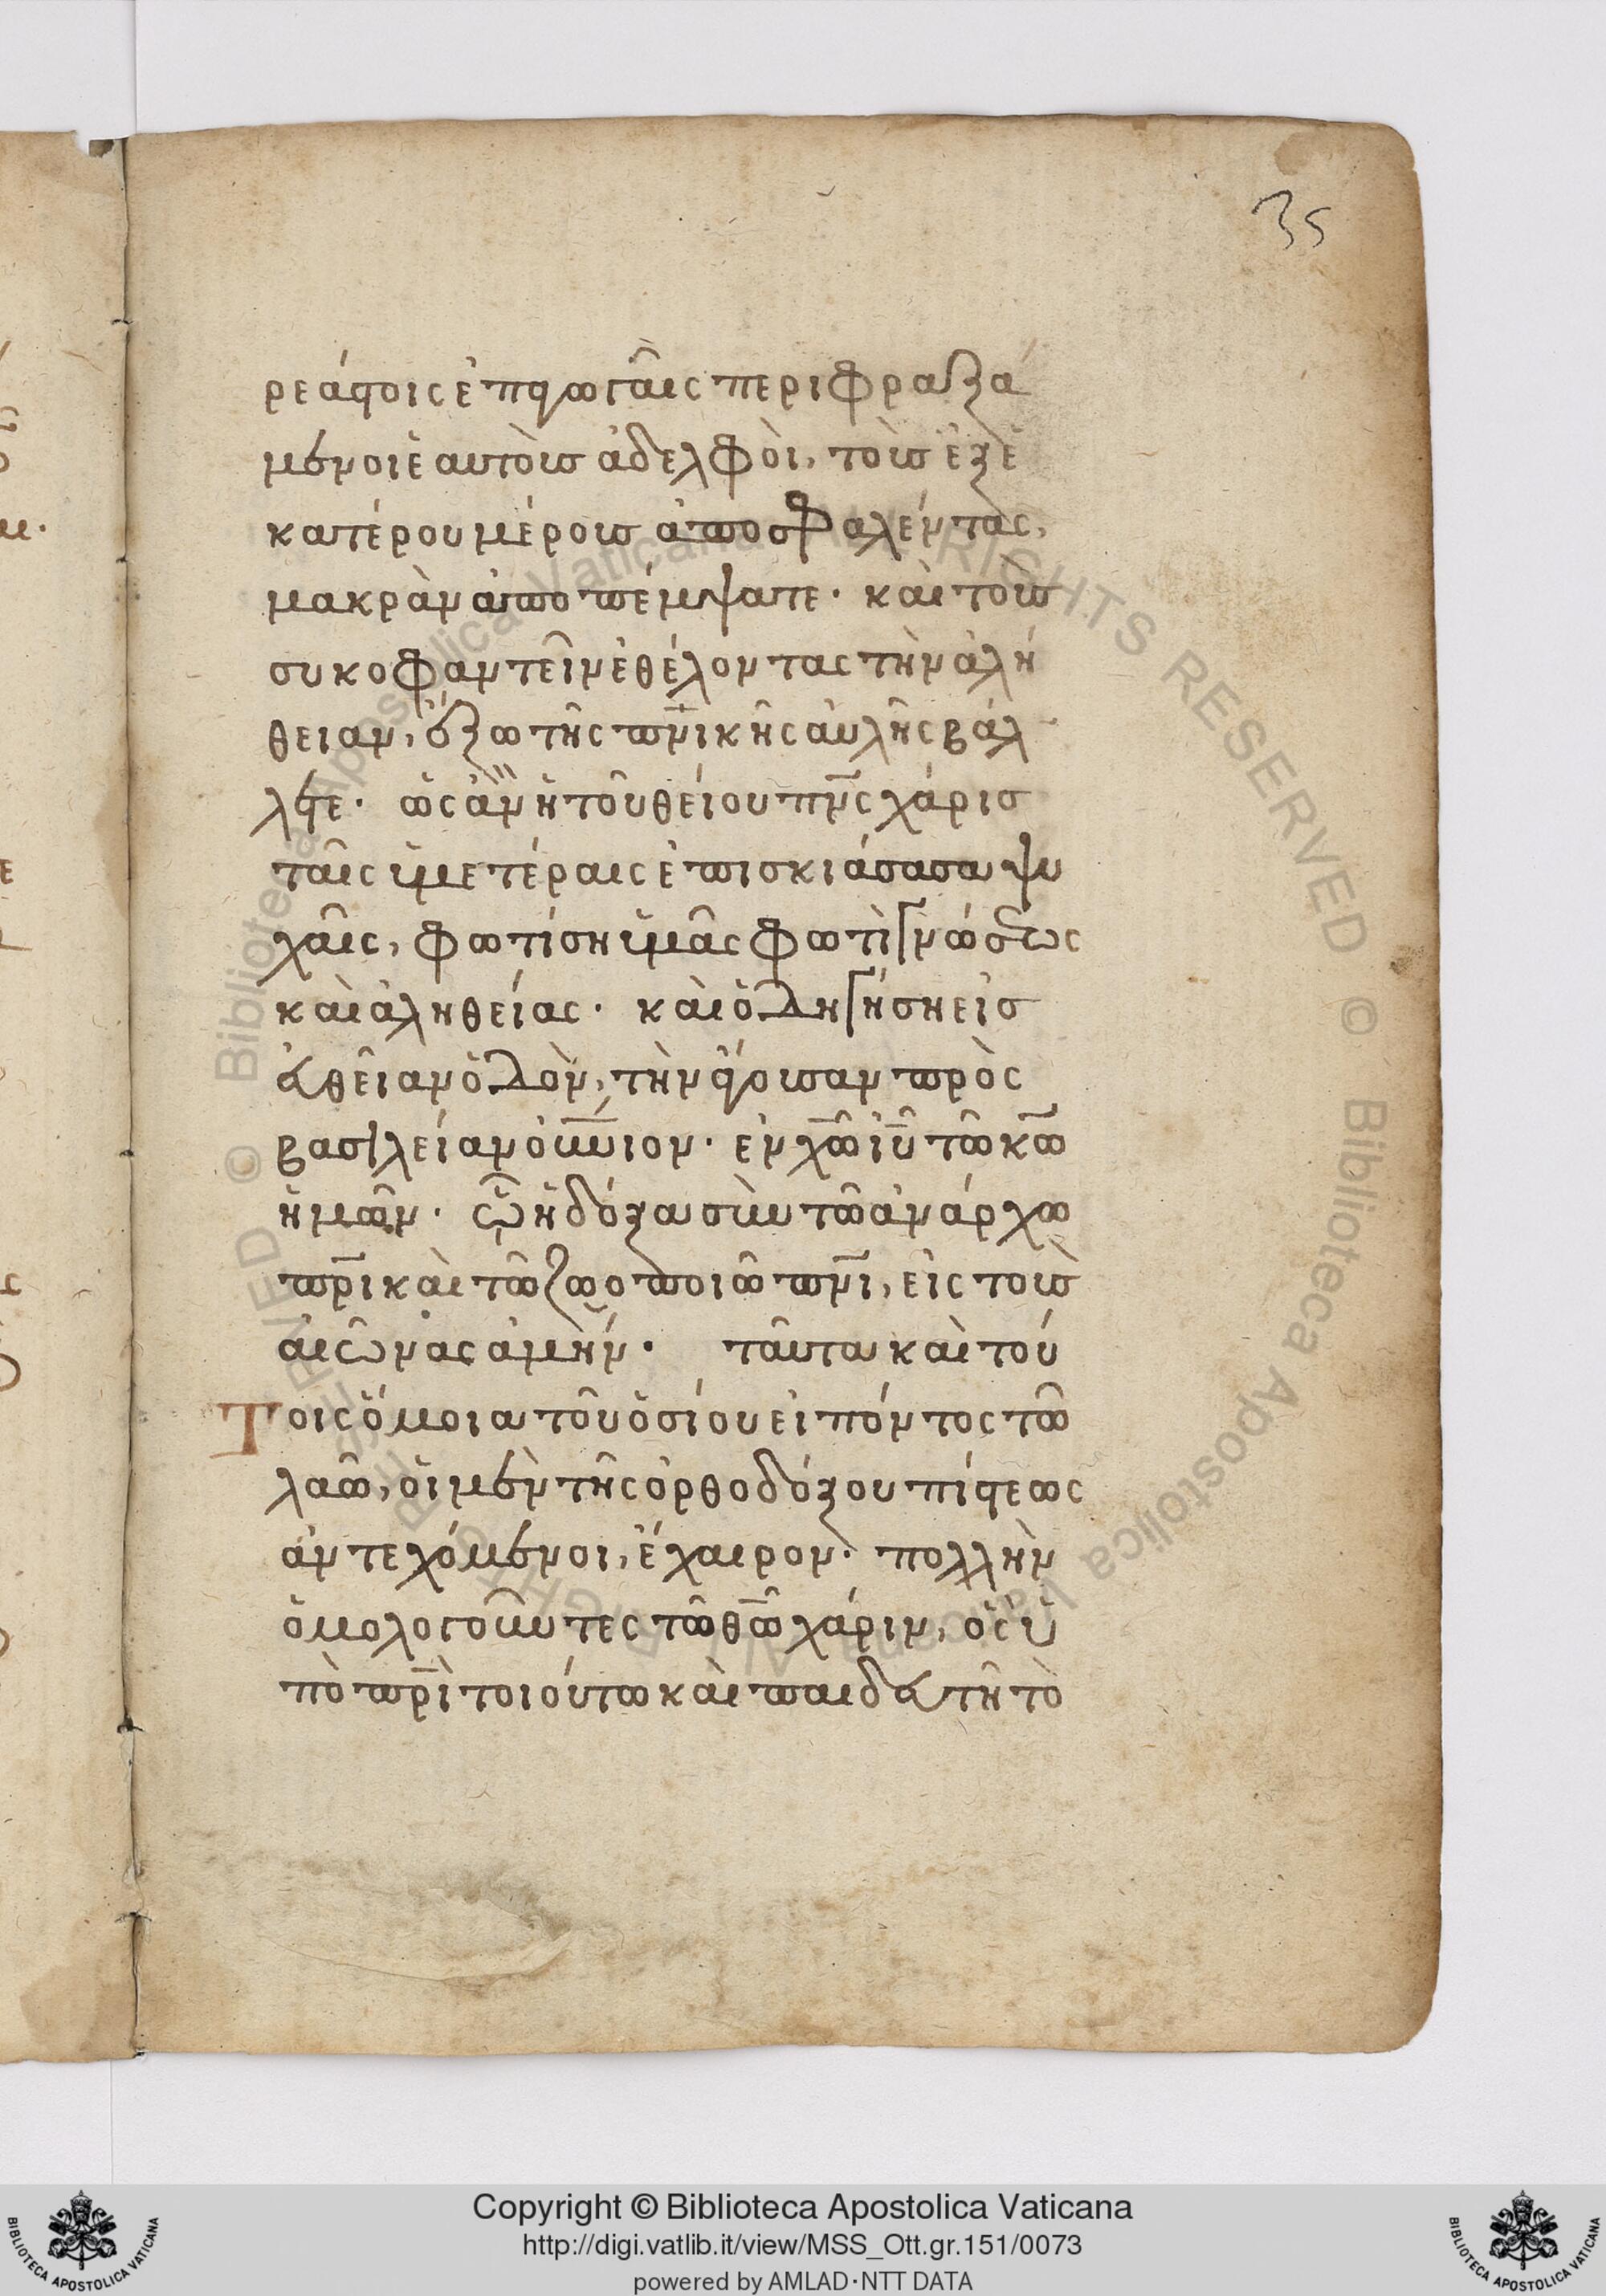 35
ρεάστοις ἐπῳωγαῖς περιφραξά
μενοι ἑαυτοὺς ἀδελφοὶ, τοὺς ἐξ ἑ
κατέρου μέρους ἀποσφαλέντας,
μακρὰν ἀποπέμψατε· καὶ τοὺς
συκοφαντεῖν ἐθέλοντας τὴν ἀλή
θειαν, ἔξω τῆς πν̅ικῆς αὐλῆς βάλ
λετε· ὡς ἂν ἡ τοῦ θείου πν̅ς χάρις
ταῖς ὑμετέραις ἐπισκιάσασα ψυ
χαῖς, φωτίση ὑμᾶς φωτὶ γνώσεως
καὶ ἀληθείας· καὶ ὁδηγήση εἰς
εὐθεῖαν ὁδὸν, τὴν φέρουσαν πρὸς
βασιλείαν οὐν̅ιον· ἐν χω̅ ιυ̅ τῶ κω̅
ἡμῶν· ὧ ἡ δόξα σὺν τῶ ἀνάρχω
πρ̅ι καὶ τῶ ζωοποιῶ πν̅ι, εἰς τοὺς
αἰῶνας ἀμήν· ταῦτα καὶ τού
Τοις ὅμοια τοῦ ὁσίου εἰπόντος τῶ
λαῶ, οἱ μὲν τῆς ὀρθοδόξου πίστεως
ἀντεχόμενοι, ἔχαιρον· πολλὴν
ὁμολογοῦντες τῶ θω̅ χάριν, ὅς ὑ
πὸ πρ̅ὶ τοιούτω καὶ παιδευτῆ τὸ
Copyright © Biblioteca Apostolica Vaticana
http://digi.vatlib.it/view/MSS_Ott.gr.151/0073
powered by AMLAD·NTT DATA
BIBLIOTECA APOSTOLICA VATICANA
BIBLIOTECA APOSTOLICA VATICANA